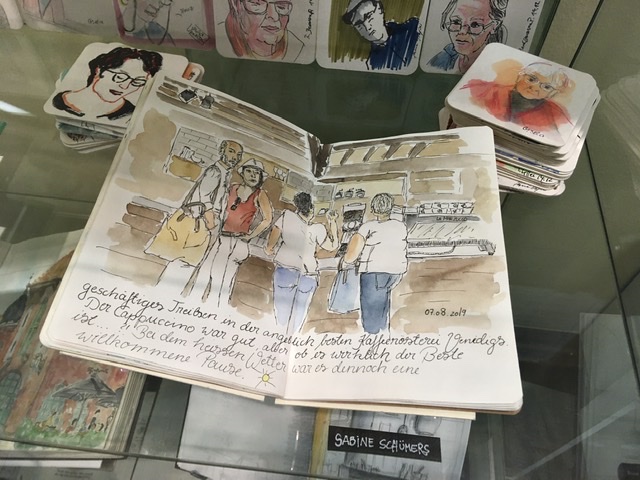 07.08.2019
geschäftiges Treiben in der angeblich besten Kaffeerösterei Venedigs.
Der Cappuccino war gut, aber ob es wirklich der Beste
ist... ?! Bei dem heissen Wetter war es dennoch eine
willkommene Pause.
SABINE SCHÜMERS